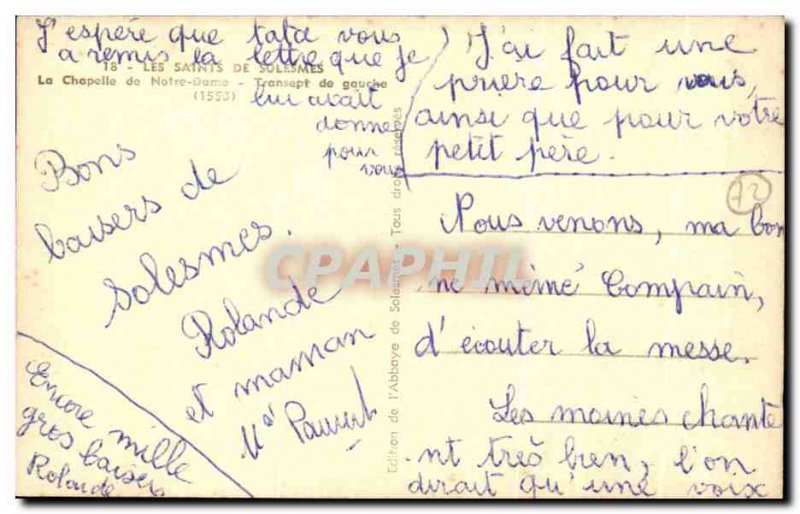 J'espère que tata vous
a remis la lettre que je
18 - LES SAINTS DE SOLESMES
La Chapelle de Notre-Dame - Transept de gauche
(1553)
lui avait
donné
pour
vous
J'ai fait une
prière pour vous,
ainsi que pour votre
petit père.
72
Nous venons, ma bon
ne mémé Compain,
d'écouter la messe.
Les moines chante
nt très bien, l'on
dirait qu'une voix
Bons
baisers de
Solesmes.
Rolande
et maman
Encore mille
gros baisers
Rolande
Edition de l'Abbaye de Solesmes - Tous droits réservés
CPAPHIL